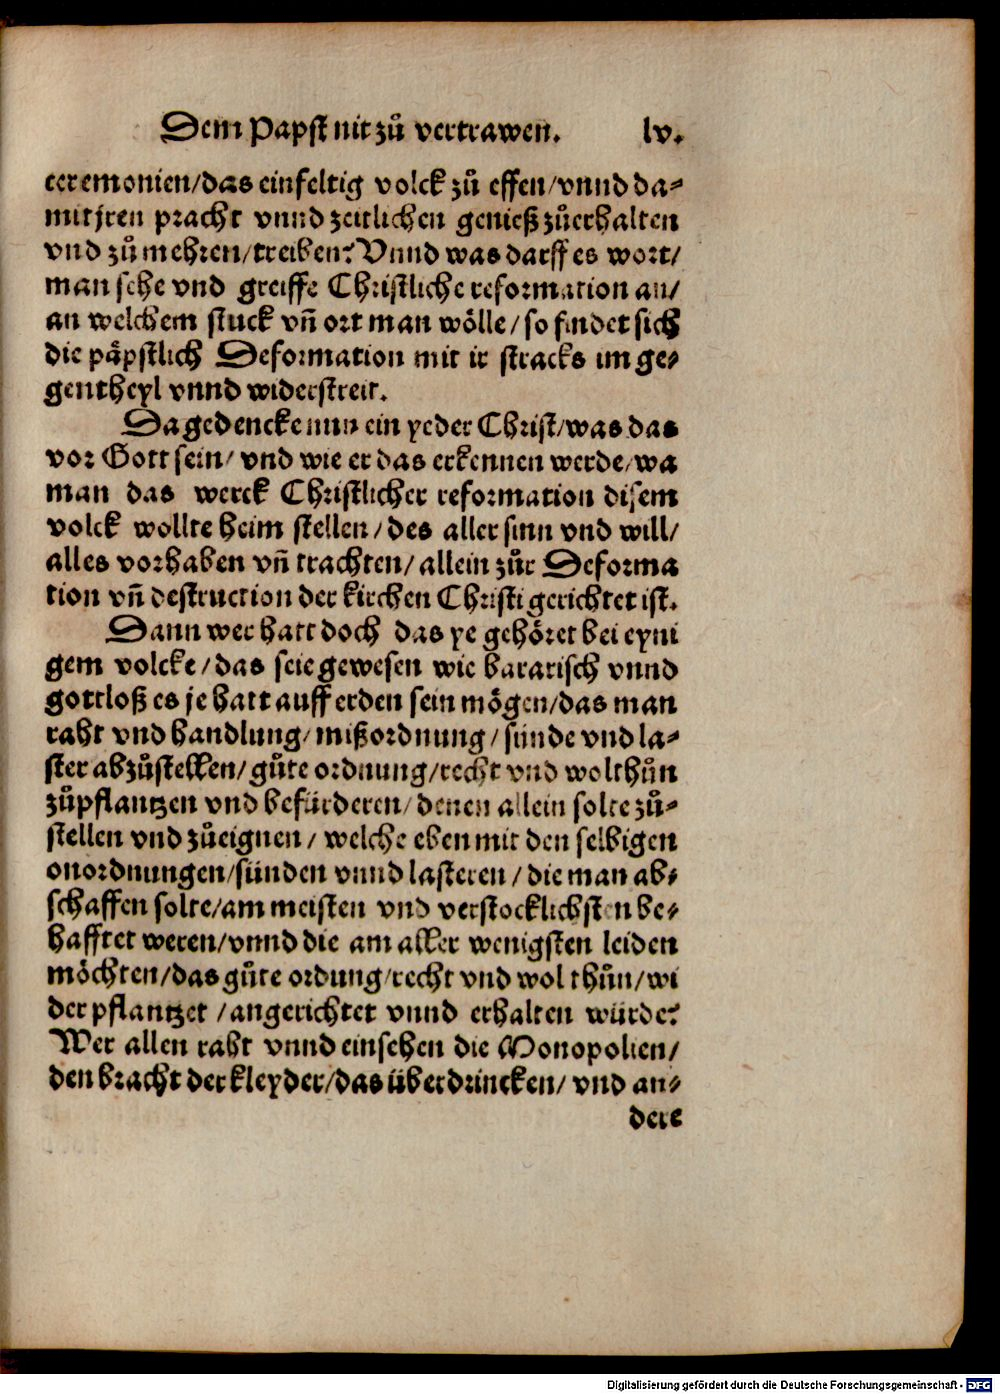 Dem Papst nit zů vertrawen. lv.
ceremonien/das einfeltig volck zů effen/vnnd da⸗
mit jren pracht vnnd zeitlichen genieß zůerhalten
vnd zů mehren/treiben? Vnnd was darff es wort/
man sehe vnd greiffe Christliche reformation an/
an welchem stuck vñ ort man wölle/so findet sich
die päpstlich Deformation mit ir stracks im ge⸗
gentheyl vnnd widerstreit.
Da gedencke nun ein yeder Christ/was das
vor Gott sein/ vnd wie er das erkennen werde/wa
man das werck Christlicher reformation disem
volck wollte heim stellen/des aller sinn vnd will/
alles vorhaben vñ trachten/allein zůr Deforma
tion vñ destruction der kirchen Christi gerichtet ist.
Dann wer hatt doch das ye gehöret bei eyni
gem volcke/das seie gewesen wie bararisch vnnd
gottloß es je hatt auff erden sein mögen/das man
raht vnd handlung/mißordnung/sünde vnd la⸗
ster abzůstellen/gůte ordnung/recht vnd wolthůn
zůpflantzen vnd befürderen/denen allein solte zů⸗
stellen vnd zůeignen/ welche eben mit den selbigen
onordnungen/sünden vnnd lasteren/die man ab⸗
schaffen solte/am meisten vnd verstocklichsten be⸗
hafftet weren/vnnd die am aller wenigsten leiden
möchten/das gůte ordung/recht vnd wol thůn/wi
der pflantzet/angerichtet vnnd erhalten würde?
Wer allen raht vnnd einsehen die Monopolien/
den bracht der kleyder/das überdrincken/ vnd an⸗
dere
Digitalisierung gefördert durch die Deutsche Forschungsgemeinschaft - DFG